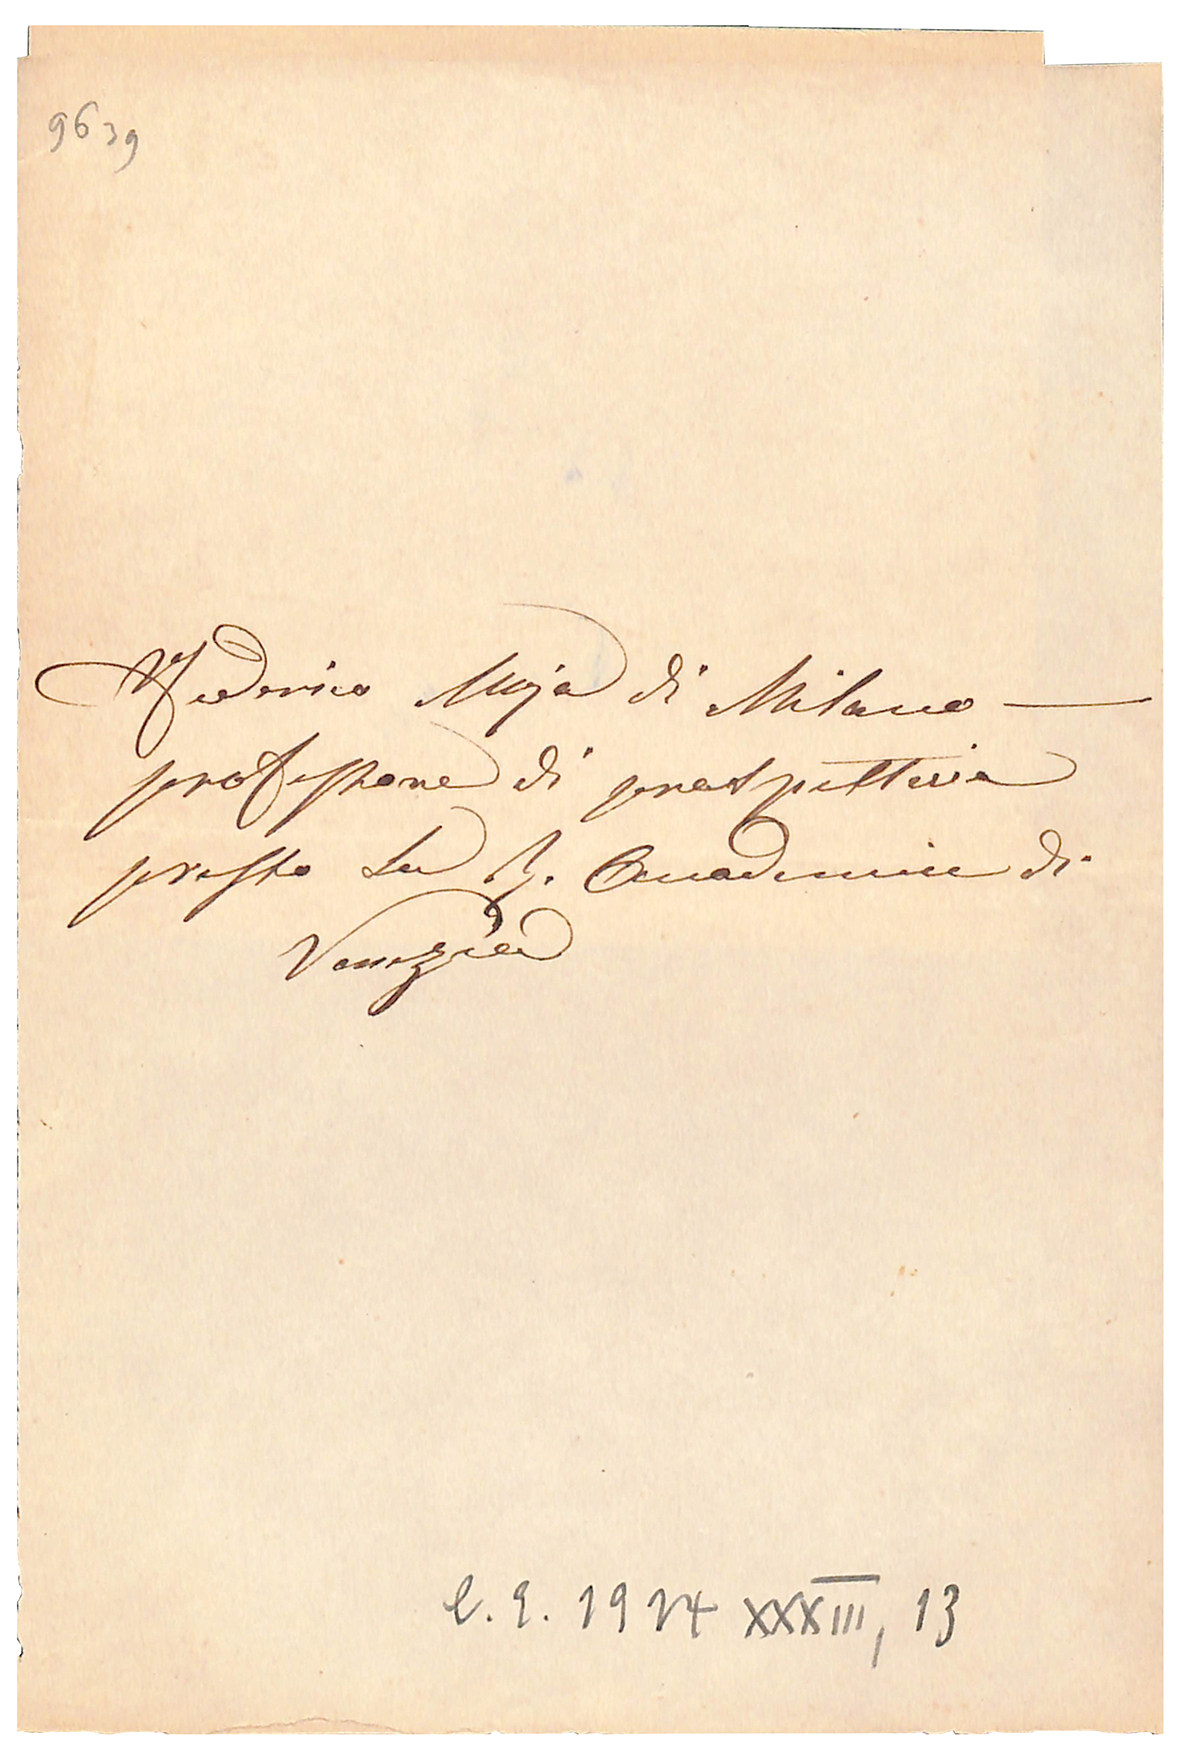 9639
Federico Moja di Milano —
professore di prospettiva
presso la R. Accademia di
Venezia
l. 9. 1924 XXXIII, 13